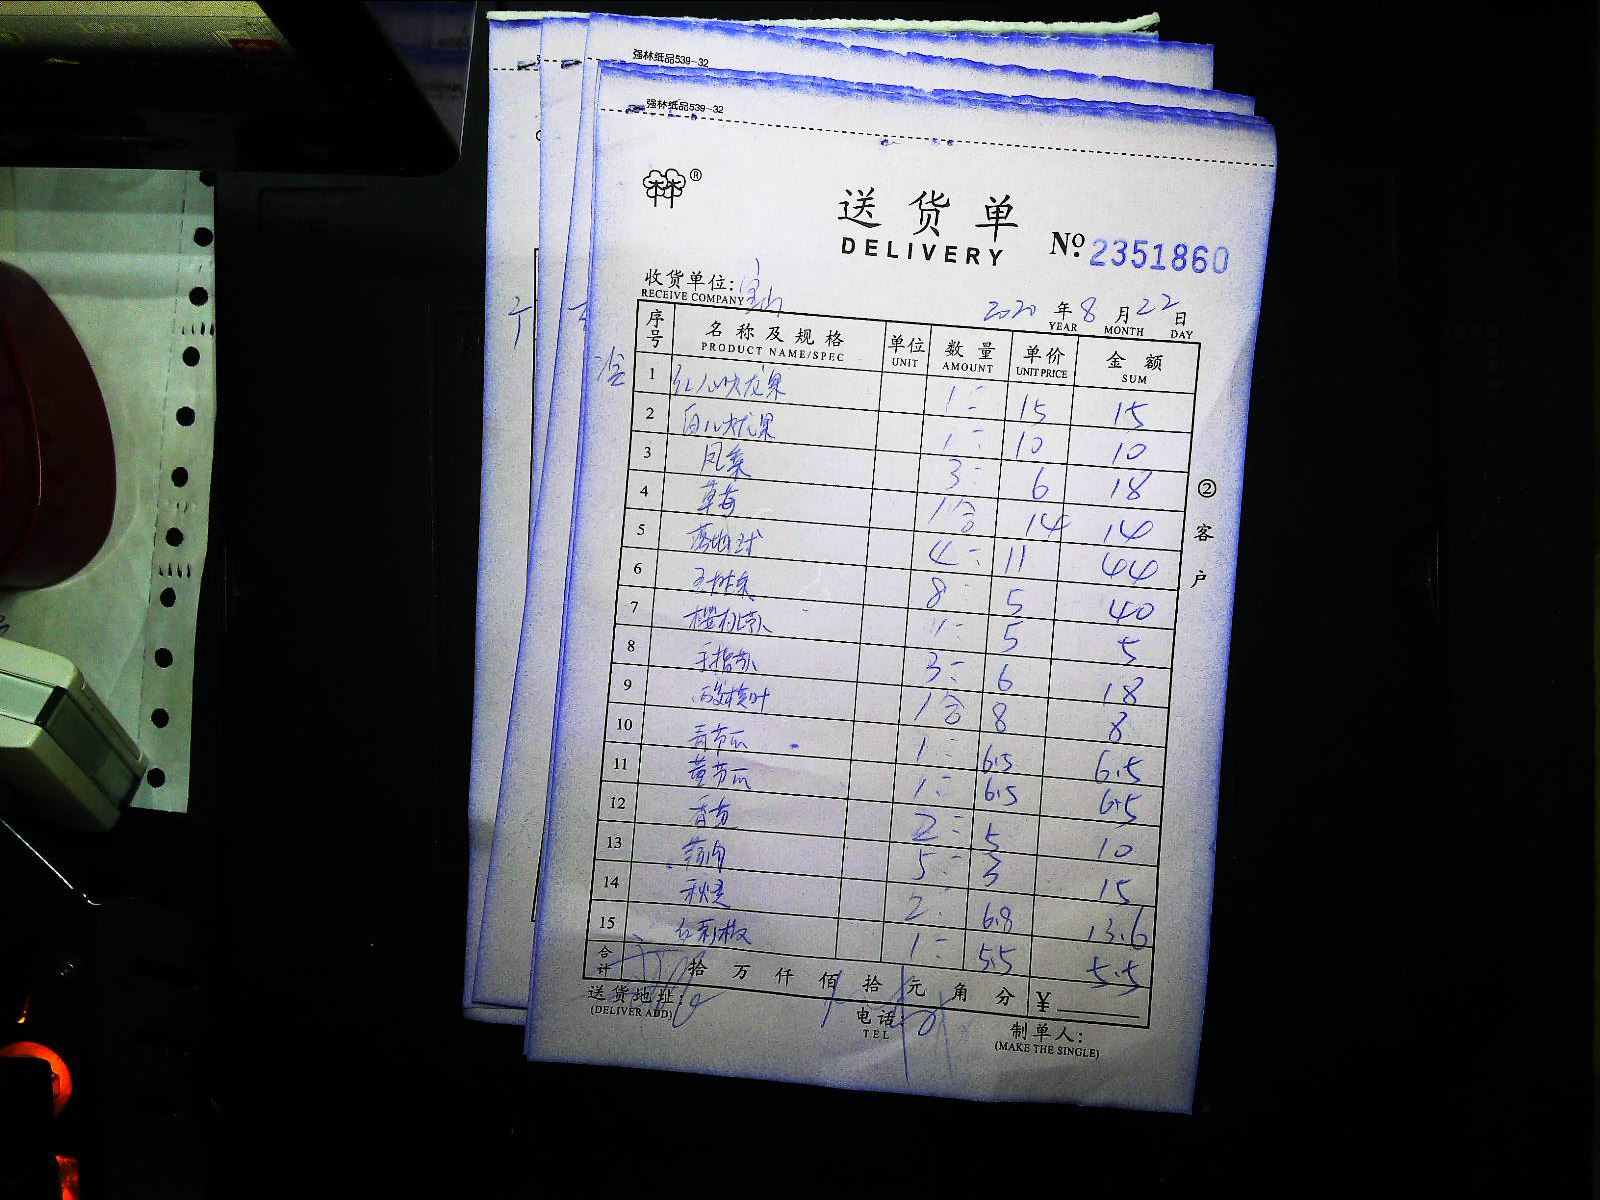 强林纸品539-32
强林纸品539-32
®
送货单
DELIVERY
№ 2351860
收货单位: 宝山
RECEIVE COMPANY
2020 年 8 月 22 日
YEAR MONTH DAY
序号 名称及规格 单位 数量 单价 金额
PRODUCT NAME/SPEC UNIT AMOUNT UNIT PRICE SUM
1 红心火龙果 1 15 15
2 白心火龙果 1 10 10
3 凤梨 3 6 18
4 草莓 1合 14 14
5 4 11 44
6 8 5 40
7 樱桃萝卜 1 5 5
8 手指萝卜 3 6 18
9 酸模叶 1合 8 8
10 青节瓜 1 6.5 6.5
11 黄节瓜 1 6.5 6.5
12 香芹 2 5 10
13 5 3 15
14 秋葵 2 6.8 13.6
15 红利椒 1 5.5 5.5
合计 拾 万 仟 佰 拾 元 角 分 ¥
送货地址:
(DELIVER ADD)
电话:
TEL
制单人:
(MAKE THE SINGLE)
② 客户